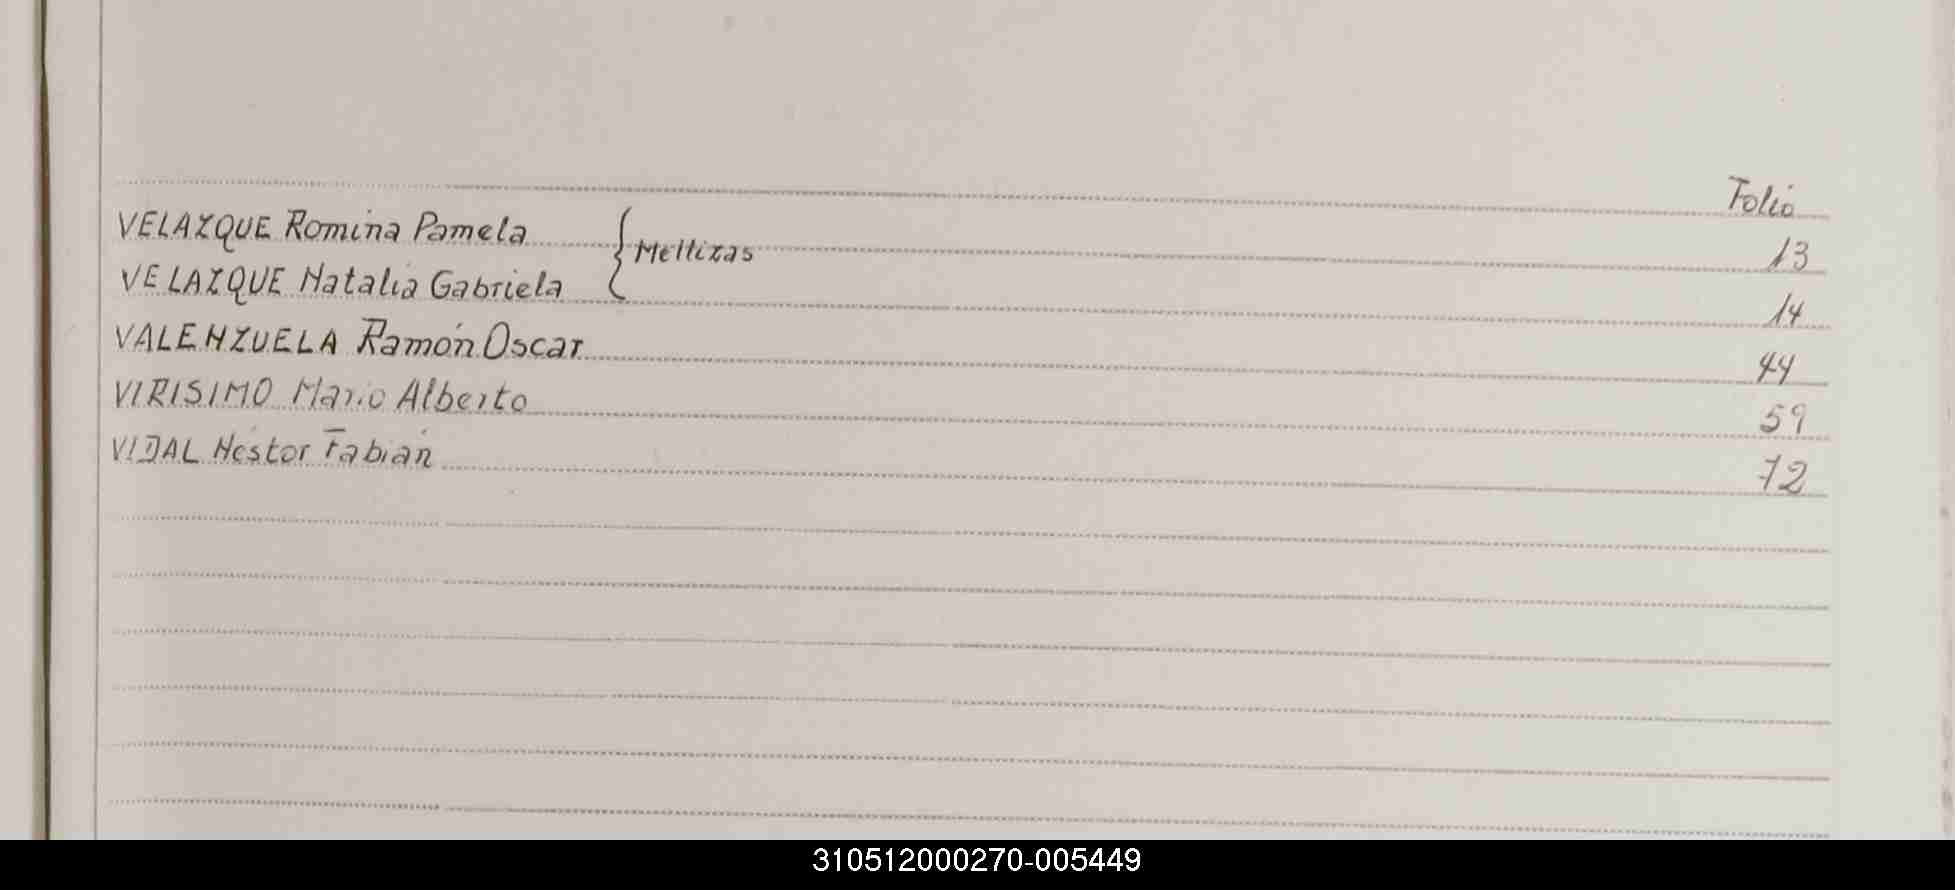 Folio
VELAZQUE Romina Pamela { Mellizas 13
VELAZQUE Natalia Gabriela 14
VALENZUELA Ramón Oscar 44
VIRISIMO Mario Alberto 59
VIDAL Héstor Fabián 72
310512000270-005449